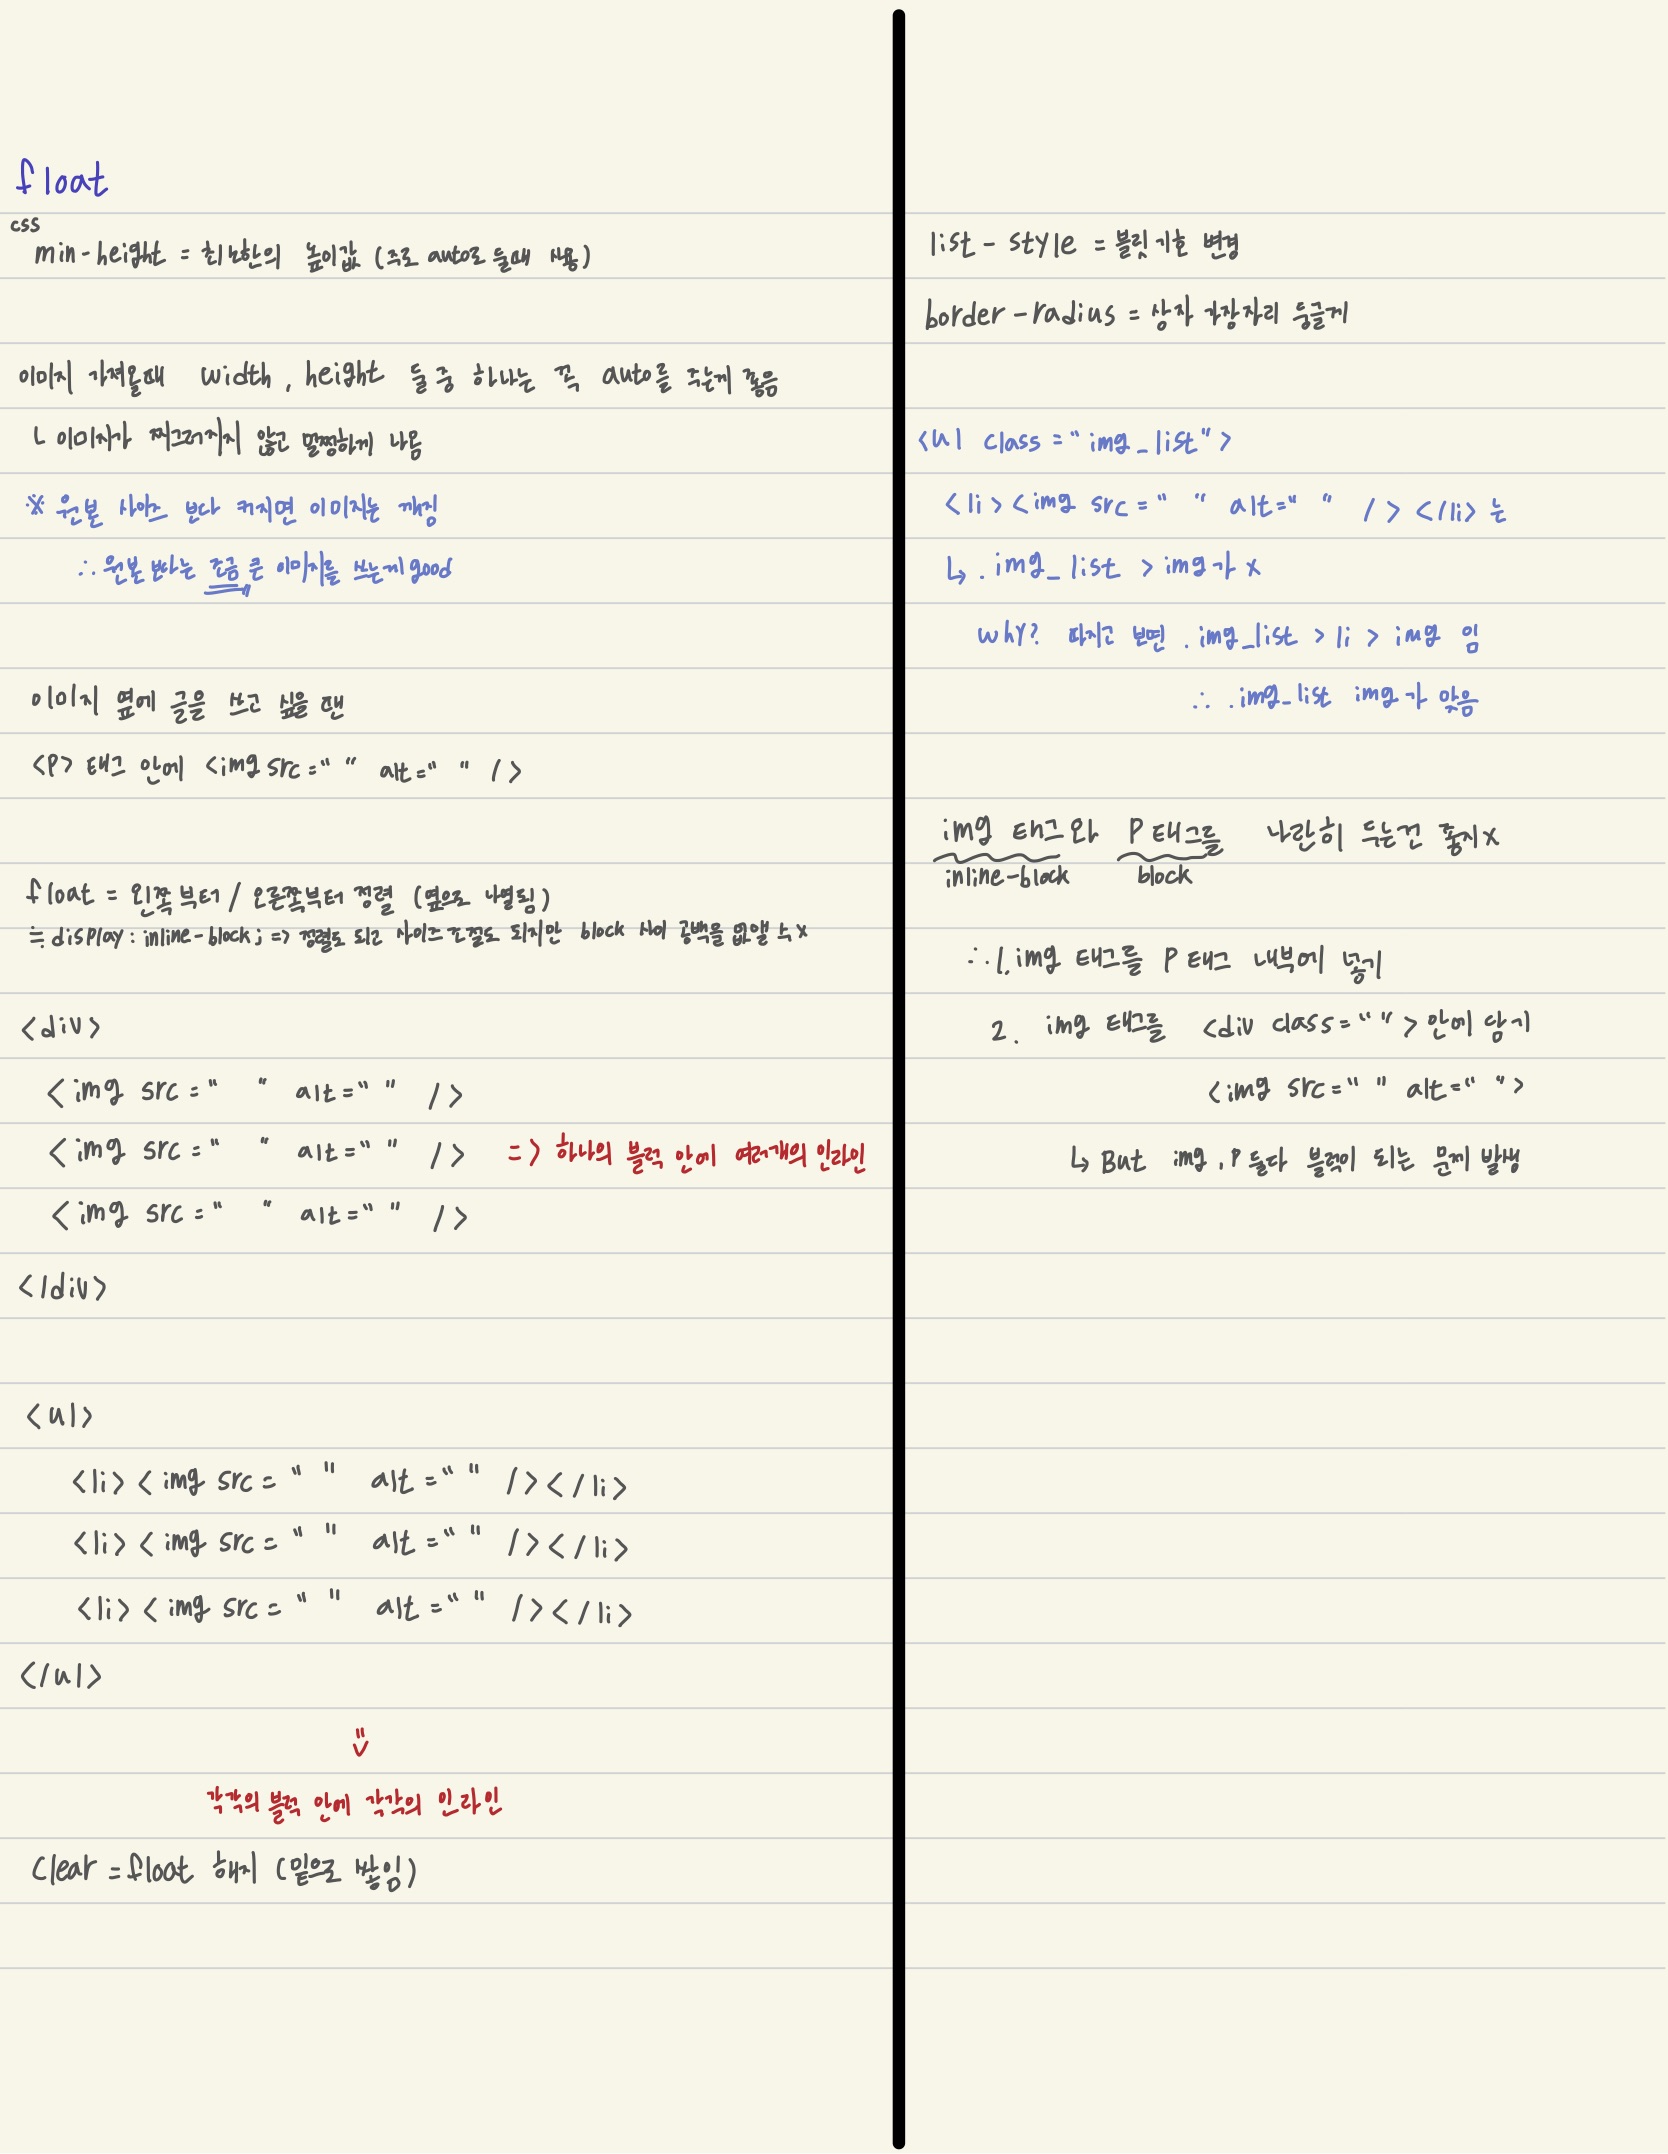 float
css
min-height =최소한의 높이값 (주로 auto로 둘때 사용)
이미지 가져올때 width, height 둘 중 하나는 꼭 auto를 주는게 좋음
ㄴ 이미지가 찌그러지지 않고 멀쩡하게 나옴
※ 원본 사이즈 보다 커지면 이미지는 깨짐
∴ 원본 보다는 조금 큰 이미지를 쓰는게 good
이미지 옆에 글을 쓰고 싶을 땐
<P> 태그 안에 <img src=" " alt=" " />
float = 왼쪽부터 / 오른쪽부터 정렬 (옆으로 나열됨)
≒ display: inline-block; => 정렬도 되고 사이즈 조절도 되지만 block 사이 공백을 없앨 수 x
<div>
<img src=" " alt=" " />
<img src=" " alt=" " /> => 하나의 블럭 안에 여러개의 인라인
<img src=" " alt=" " />
</div>
<ul>
<li><img src=" " alt=" " /></li>
<li><img src=" " alt=" " /></li>
<li><img src=" " alt=" " /></li>
</ul>
⇓
각각의 블럭 안에 각각의 인라인
Clear = float 해지 (밑으로 쌓임)
list-style = 블릿 기호 변경
border-radius = 상자 가장자리 둥글게
<ul class="img_list">
<li><img src=" " alt=" " /></li> 는
↳ .img_list > img가 x
why? 따지고 보면 .img_list > li > img 임
∴ .img_list img가 맞음
img 태그와 P 태그를 나란히 두는건 좋지x
inline-block block
∴ 1. img 태그를 P 태그 내부에 넣기
2. img 태그를 <div class=" "> 안에 담기
<img src=" " alt=" ">
↳ But img, P 둘다 블럭이 되는 문제 발생